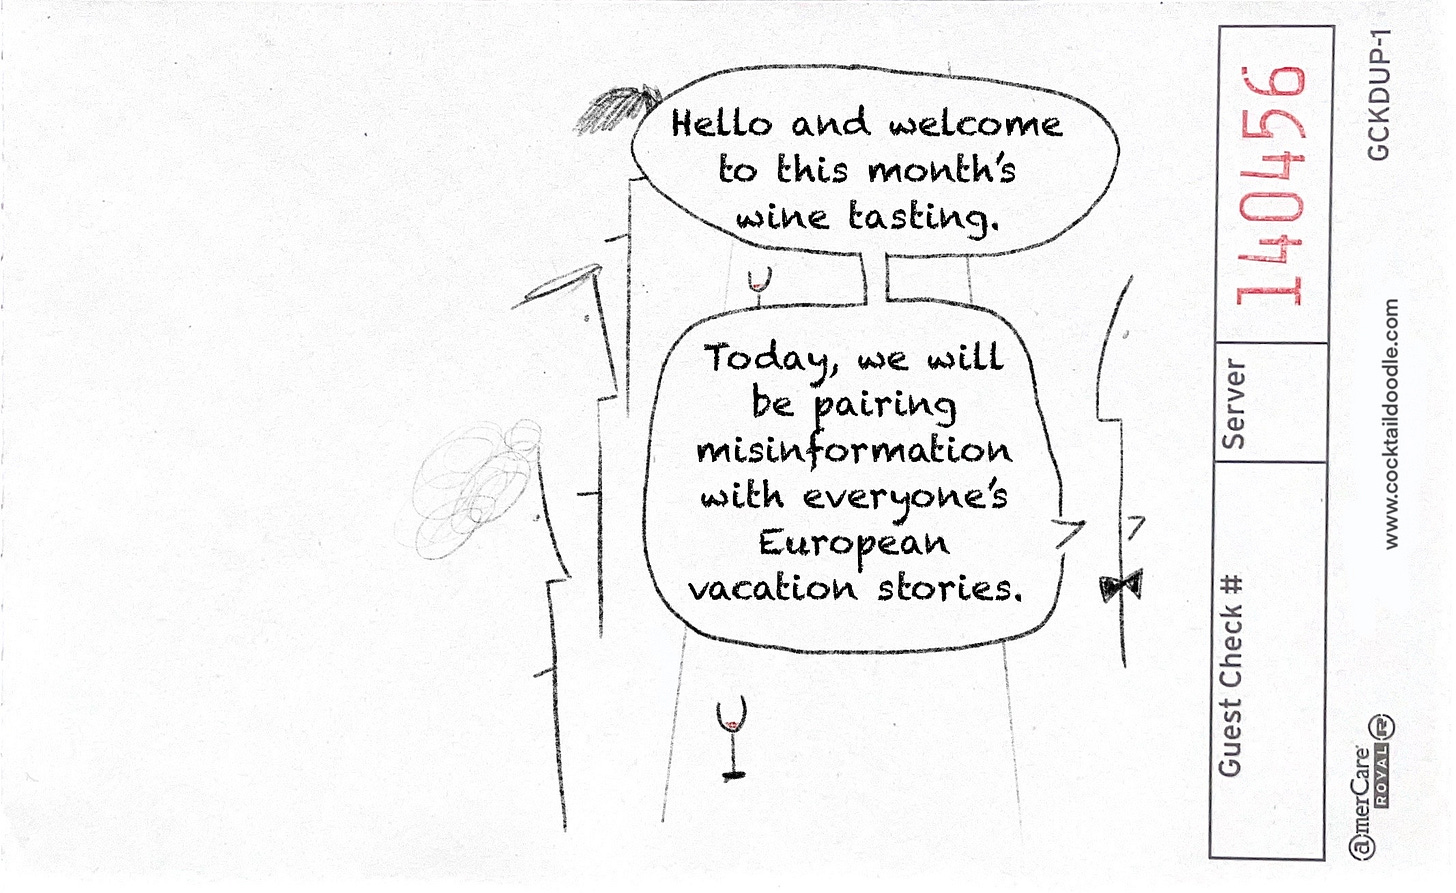 Hello and welcome
to this month's
wine tasting.
Today, we will
be pairing
misinformation
with everyone's
European
vacation stories.
Guest Check #
Server
140456
GCKDUP-1
www.cocktaildoodle.com
amerCare
ROYAL
R